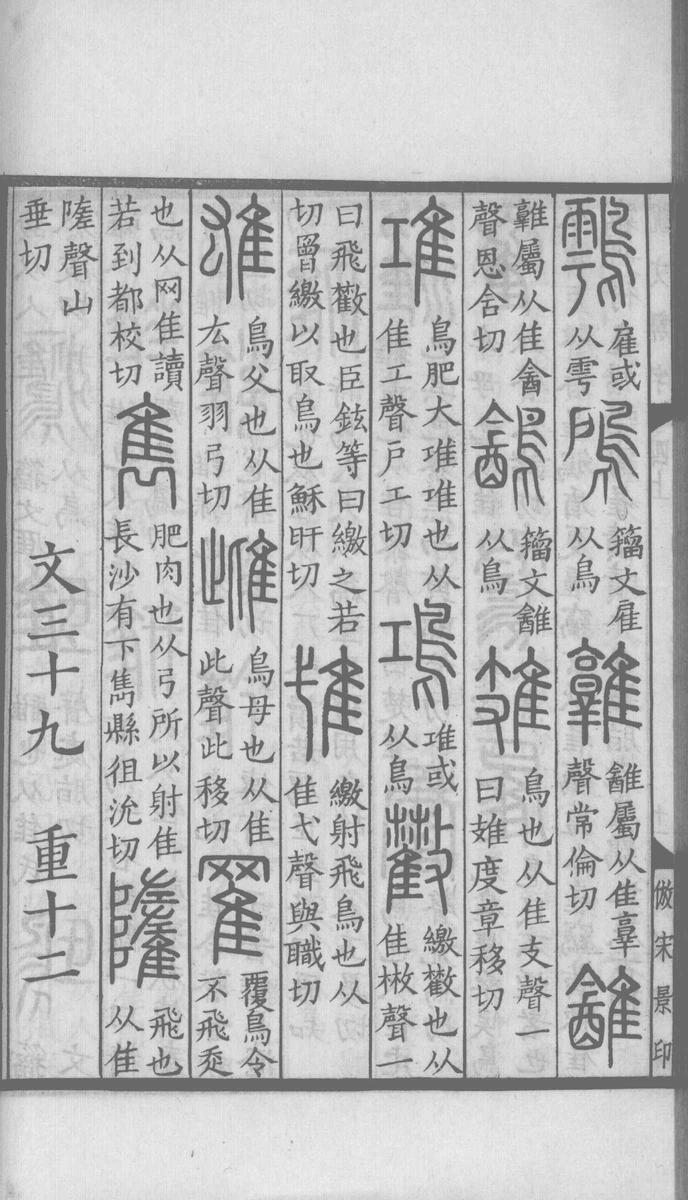 雇或从雩鳸籒文雇从鳥屬从隹𦎫聲常倫切
屬从隹酓聲恩含切籒文从鳥𨾛鳥也从隹支聲一曰𨾛度章移切
𨾊鳥肥大𨾊𨾊也从隹工聲戶工切鳿𨾊或从鳥繳也从隹㪔聲一
曰飛也臣鉉等曰繳之若切曾繳以取鳥也穌旰切隿繳射飛鳥也从隹弋聲與職切
雄鳥父也从隹厷聲羽弓切雌鳥母也从隹此聲此移切覆鳥令不飛走
也从网隹讀若到都校切雋肥肉也从弓所以射隹長沙有下雋縣徂沇切飛也从隹
聲山垂切
文三十九 重十二
倣宋景印